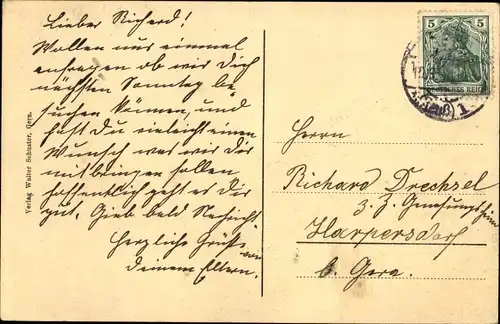 Lieber Richard!
Wollen nur einmal
anfragen ob wir Dich
nächsten Sonntag be-
suchen können, und
hast Du vieleicht einen
Wunsch was wir dir
mitbringen sollen
hoffentlich geht es dir
gut. Gieb bald Nachricht
Herzliche Grüße von
deinen Eltern.
Verlag Walter Schuster, Gera.
5 5
DEUTSCHES REICH
1
Herrn
Richard Drechsel
z. Z. Genesungsheim
Harpersdorf
b. Gera.